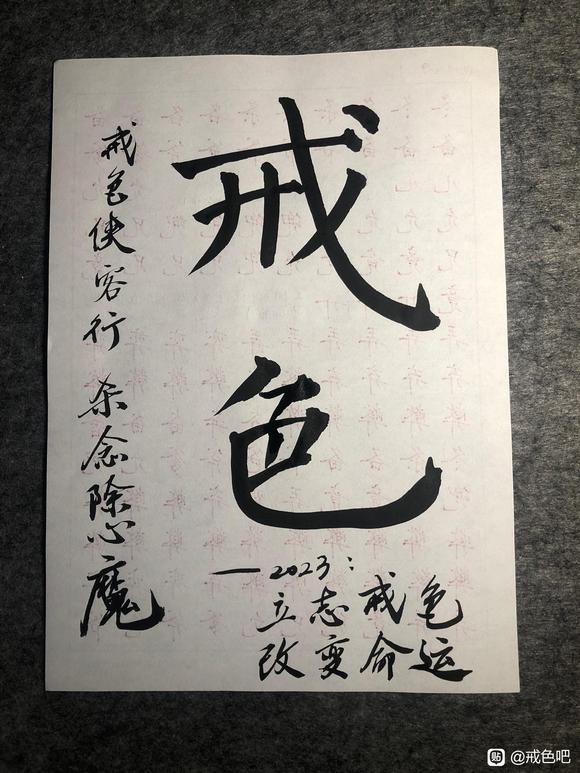 戒色
戒色侠客行 杀念除心魔
—2023：
立志戒色
改变命运
贴 @戒色吧